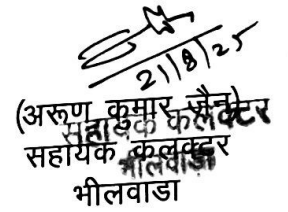 21/8/25
(अरूण कुमार जैन)
सहायक कलक्टर
सहायक कलक्टर
भीलवाडा
भीलवाडा